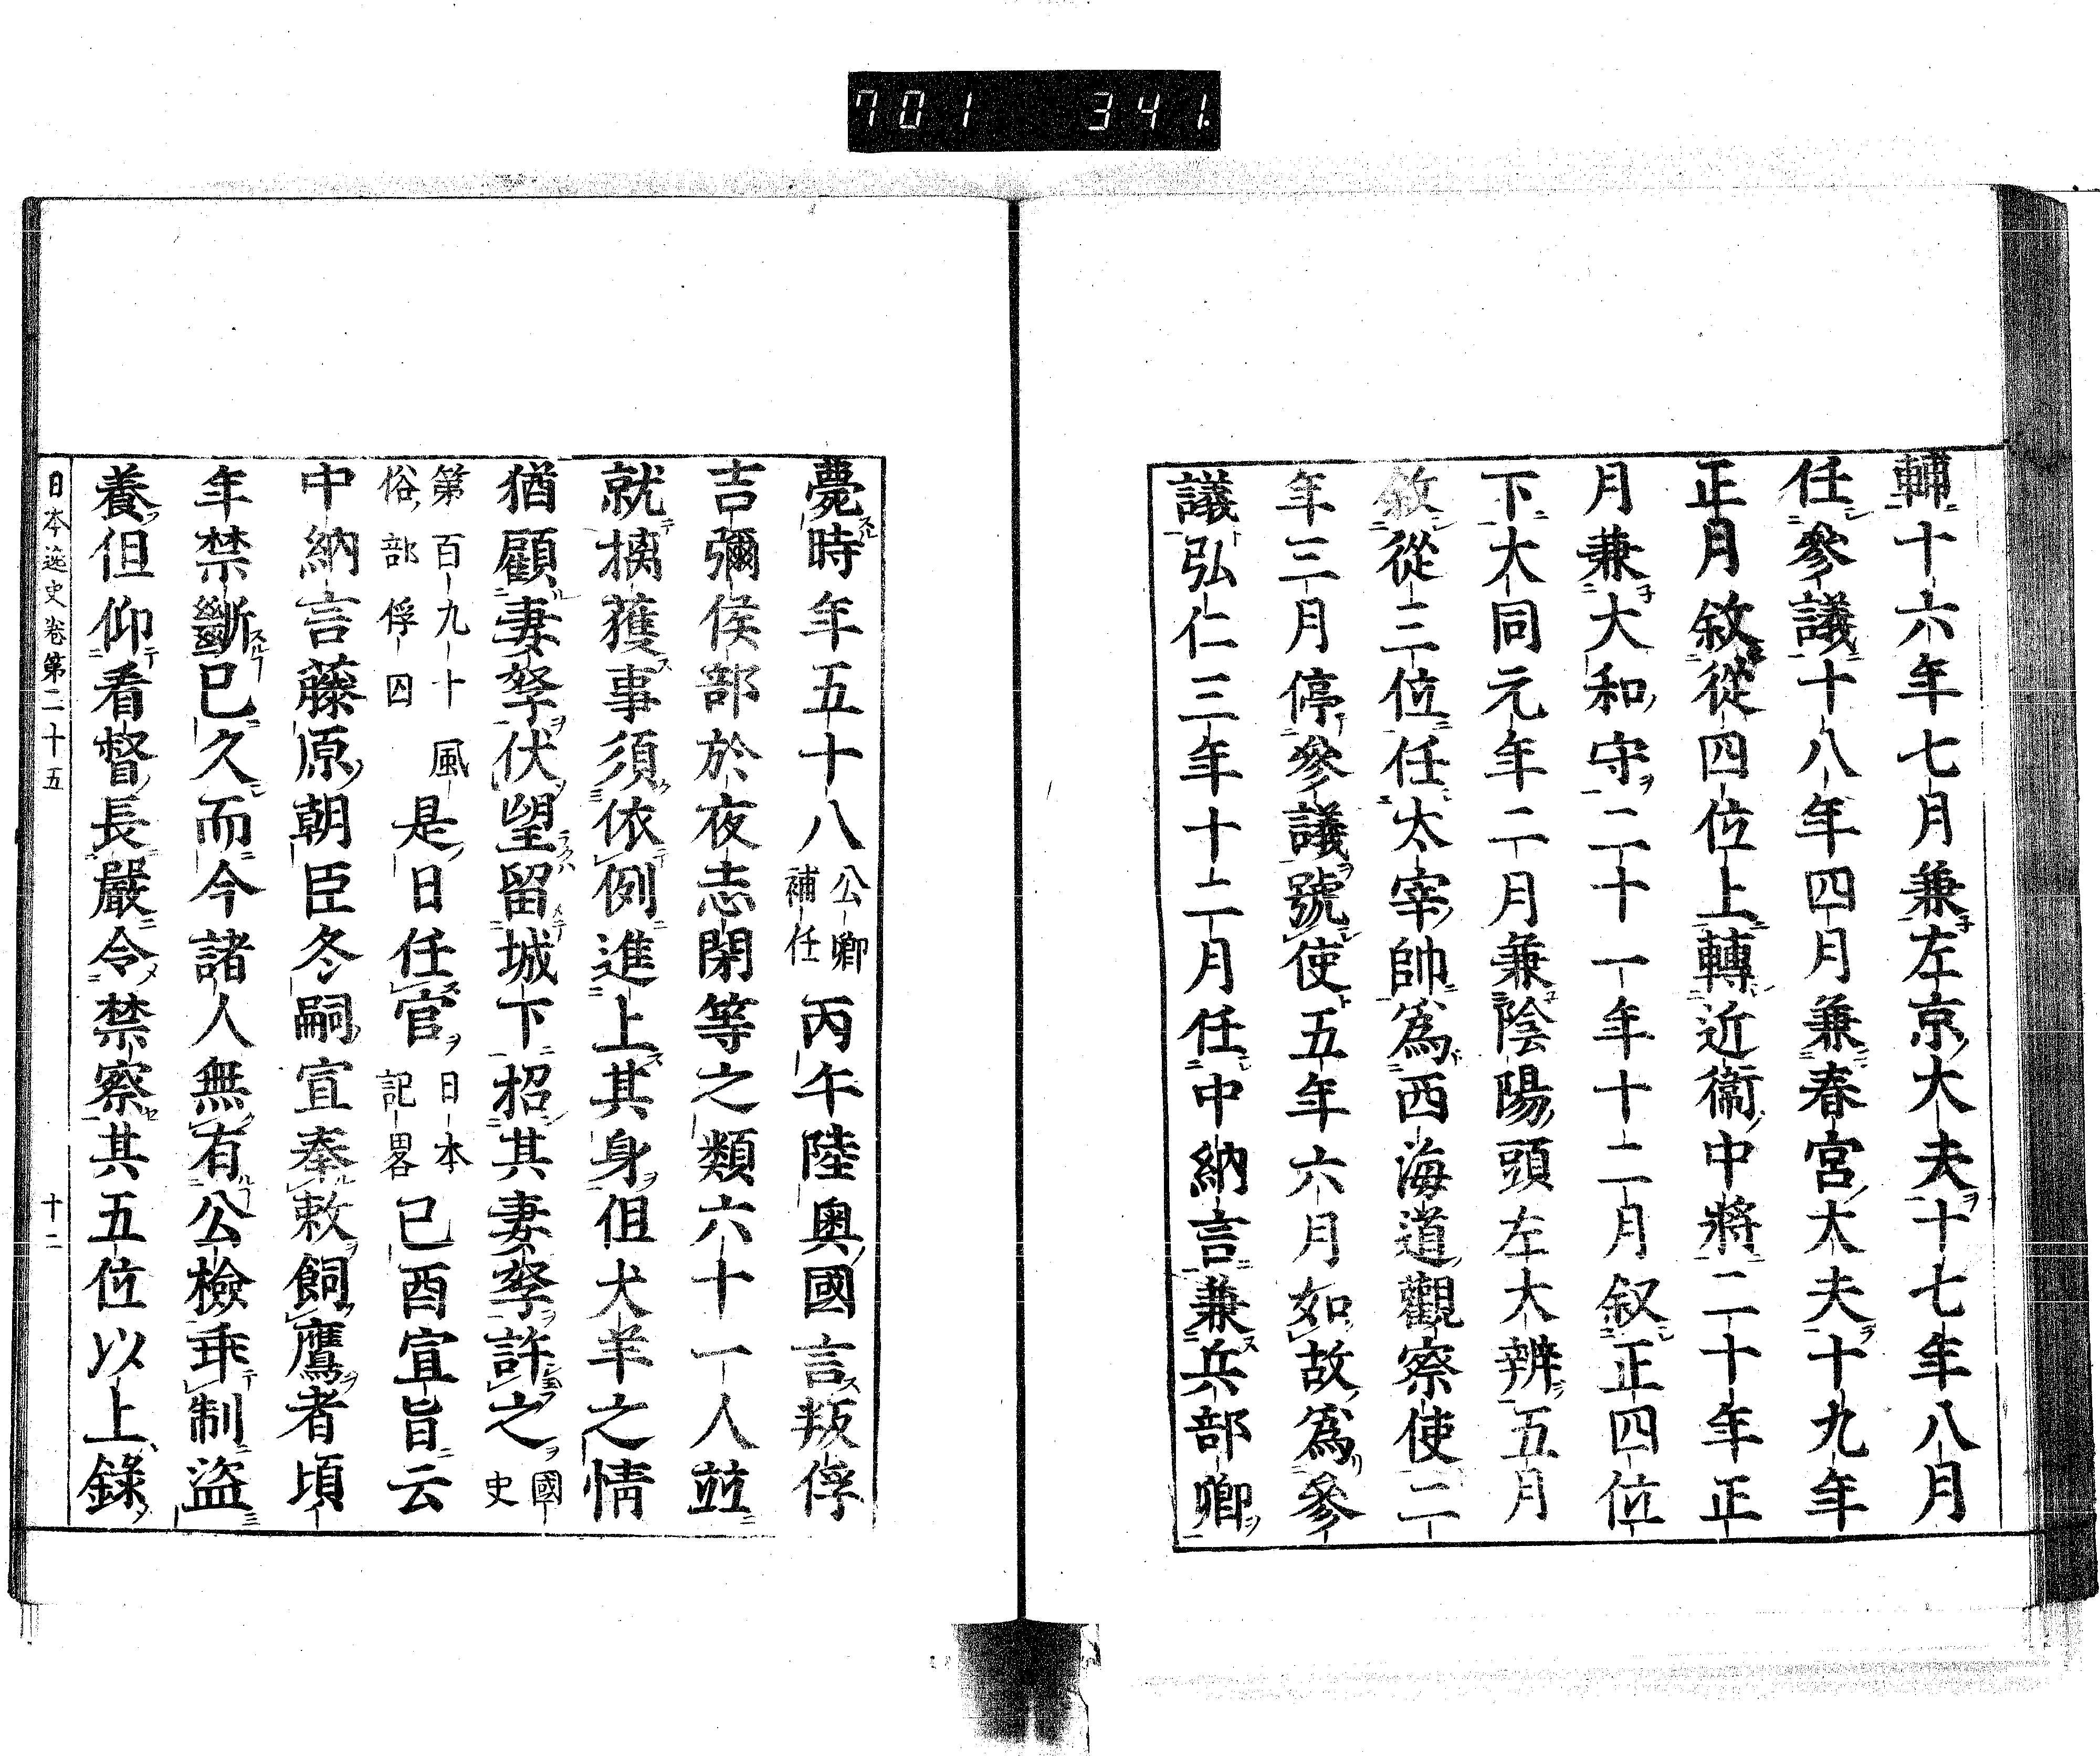 701 341.
輔十六年七月兼左京大夫十七年八月
任參議十八年四月兼春宮大夫十九年
正月敘從四位上轉近衞中將二十年正
月兼大和守二十一年十二月叙正四位
下大同元年二月兼陰陽頭左大辨五月
敘從三位任太宰帥爲西海道觀察使二
年三月停參議號使五年六月如故爲參
議弘仁三年十二月任中納言兼兵部卿
薨時年五十八公卿補任丙午陸奥國言叛俘
吉彌侯部於夜志閇等之類六十一人並
就擒獲事須依例進上其身但犬羊之情
猶顧妻孥伏望留城下招其妻孥許之國史
第百九十風俗部俘囚是日任官日本記畧己酉宣旨云
中納言藤原朝臣冬嗣宣奉敕飼鷹者頃
年禁斷已久而今諸人無有公檢乖制盜
養但仰看督長嚴令禁察其五位以上錄
日本逸史卷第二十五 十二